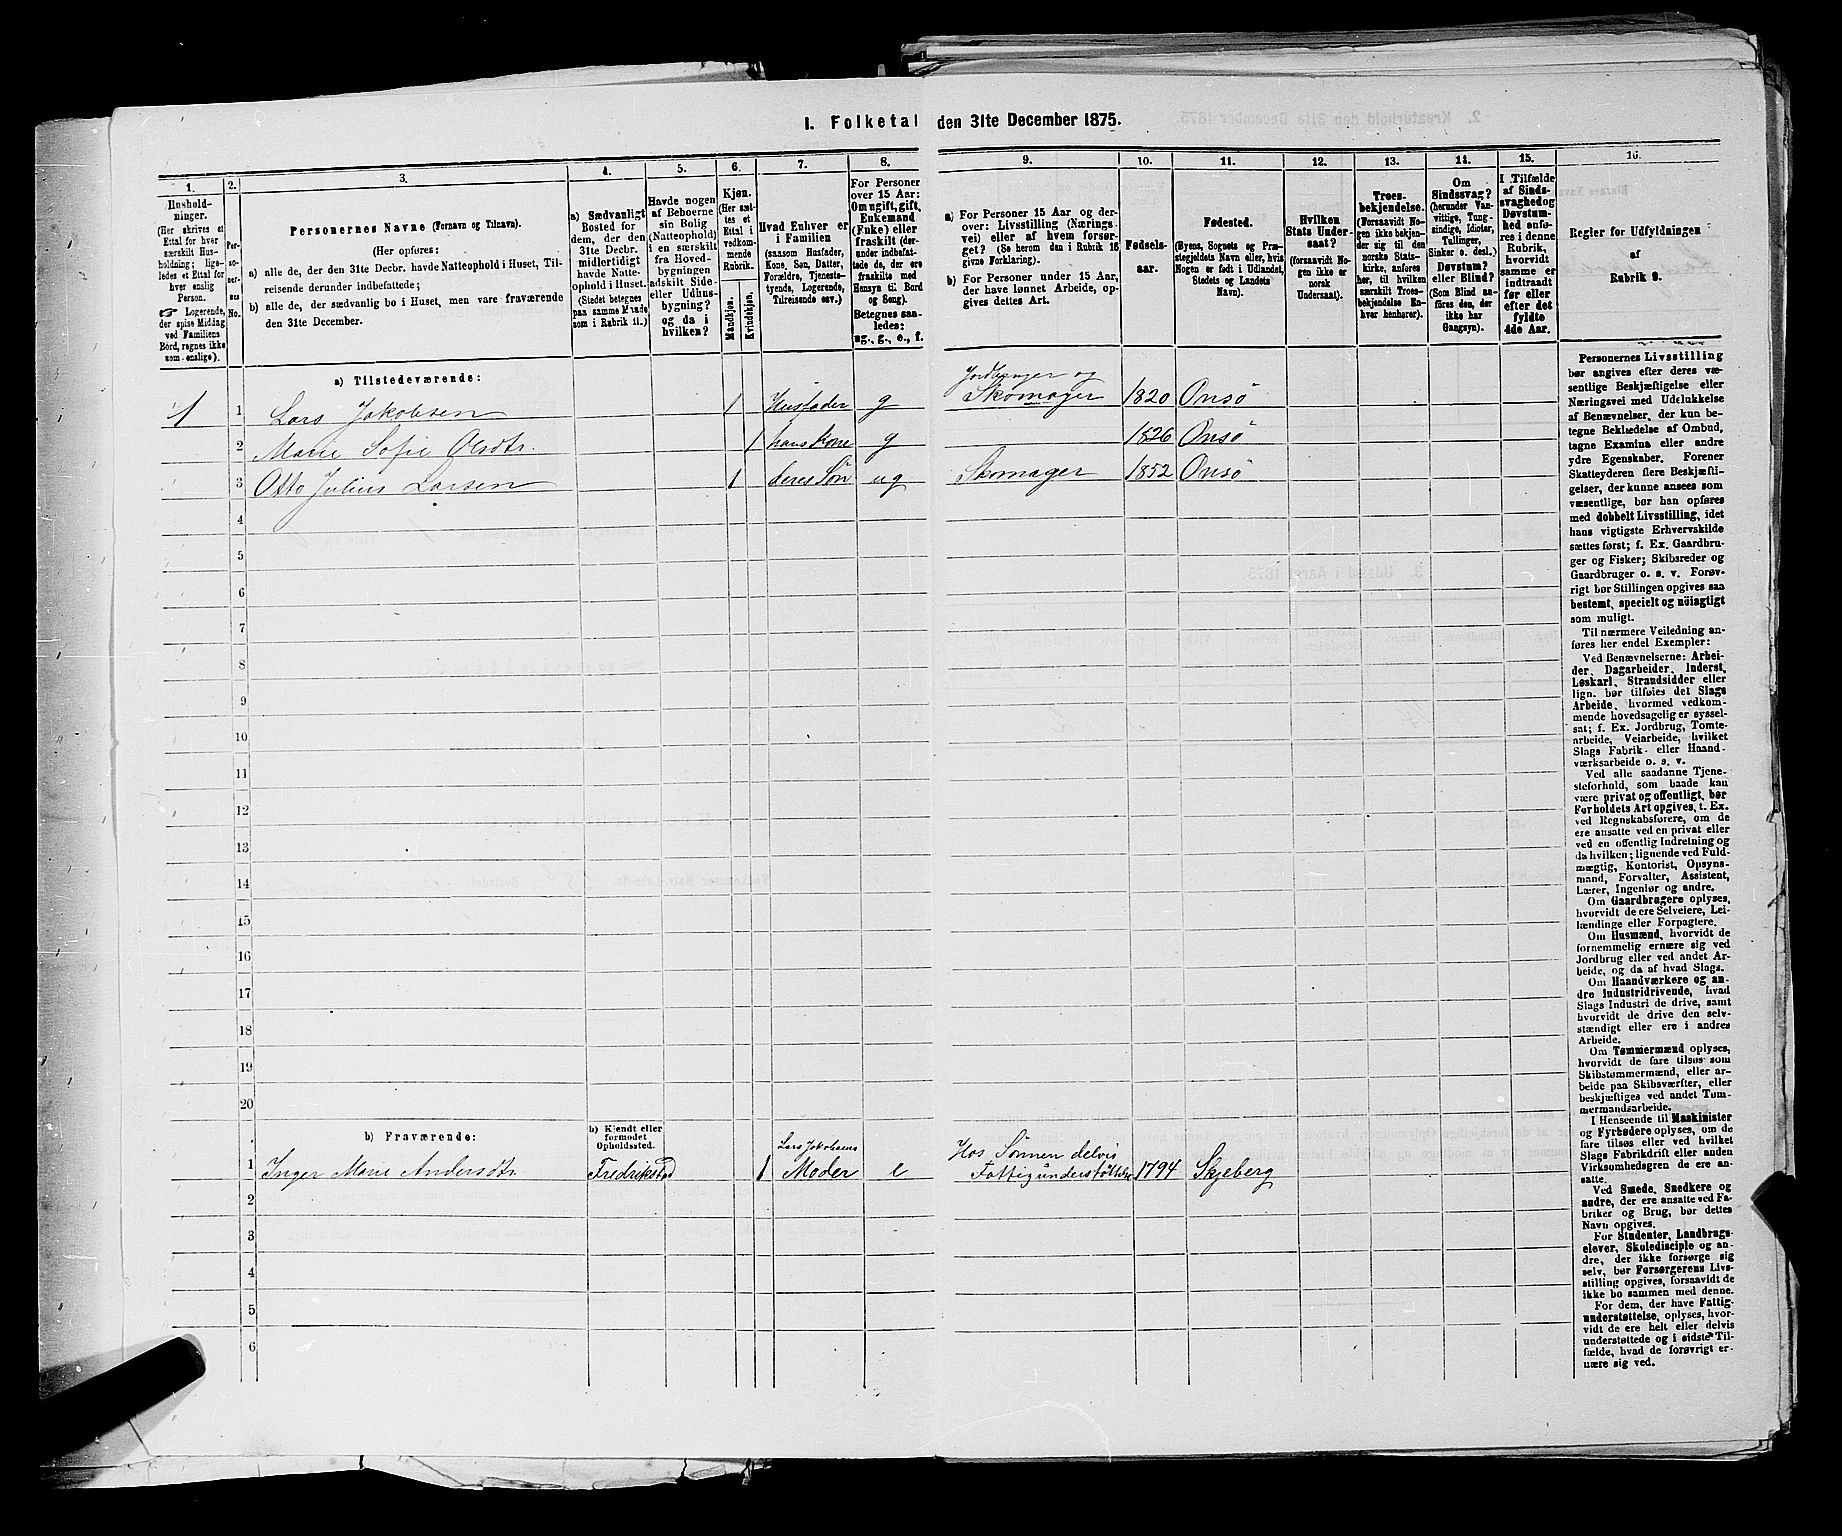 1. Folketal den 31te December 1875.
1.
2.
3.
4.
5.
6.
7.
8.
9.
10.
11.
12.
13.
14.
15.
16.
Hushold-
ninger.
(Her skrives et
Ettal for hver
særskilt Hus-
holdning; lige-
ledes et Ettal for
hver enslig
Person.
☞ Logerende,
der spise Middag
ved Familiens
Bord, regnes ikke
som enslige).
Per-
so-
ner-
nes
No.
Personernes Navne (Fornavn og Tilnavn).
(Her opføres:
a) alle de, der den 31te Decbr. havde Natteophold i Huset, Til-
reisende derunder indbefattede;
b) alle de, der sædvanlig bo i Huset, men vare fraværende
den 31te December.
a) Sædvanligt
Bosted for
dem, der den
31te Decbr.
midlertidigt
havde Natte-
ophold i Huset.
(Stedet betegnes
paa samme Maade
som i Rubrik 11.)
Havde nogen
af Beboerne
sin Bolig
(Natteophold)
i en særskilt
fra Hoved-
bygningen
adskilt Side-
eller Udhus-
bygning?
og da i
hvilken?
Kjøn.
(Her sæt-
tes et
Ettal i
vedkom-
mende
Rubrik.
Mandkjøn.
Kvindekjøn.
Hvad Enhver er
i Familien
(saasom Husfader,
Kone, Søn, Datter,
Forældre, Tjenest-
tyende, Logerende,
Tilreisende osv.)
For Personer
over 15 Aar:
Om ugift, gift,
Enkemand
(Enke) eller
fraskilt (der-
under indbefat-
tede de, der ere
fraskilte med
Hensyn til Bord
og Seng).
Betegnes saa-
ledes:
ug., g., e., f.
a) For Personer 15 Aar og der-
over: Livsstilling (Nærings-
vei) eller af hvem forsør-
get? (Se herom den i Rubrik 16
givne Forklaring).
b) For Personer under 15 Aar,
der have lønnet Arbeide, op-
gives dettes Art.
Fødsels-
aar.
Fødested.
(Byens, Sognets og Præ-
stegjeldets Navn eller, hvis
Nogen er født i Udlandet,
Stedets og Landets
Navn).
Hvilken
Stats Under-
saat?
(forsaavidt No-
gen ikke er
norsk
Undersaat).
Troes-
bekjendelse.
(Forsaavidt No-
gen ikke bekjen-
der sig til den
norske Stats-
kirke, anføres
her, til hvilken
særskilt Troes-
bekjendelse En-
hver henhører).
Om
Sindssvag?
(herunder Van-
vittige, Tung-
sindige, Idioter,
Tullinger,
Sinker o. desl.)
Døvstum?
eller Blind?
(Som Blind an-
føres den, der
ikke har
Gangsyn).
I Tilfælde
af Sinds-
svaghed og
Døvstum-
hed anfø-
res i denne
Rubrik,
hvorvidt
samme er
indtraadt
før eller
efter det
fyldte
4de Aar.
Regler for Udfyldningen
af
Rubrik 9.
a) Tilstedeværende:
1 1 Lars Jakobsen 1 Husfader g Jordbruger og Skomager 1820 Onsø
2 Marie Sofie Olsdtr. 1 hans Kone g 1826 Onsø
3 Otto Julius Larsen 1 deres Søn ug Skomager 1852 Onsø
4
5
6
7
8
9
10
11
12
13
14
15
16
17
18
19
20
b) Fraværende:
b) Kjendt eller
formodet
Opholdssted.
1 Inger Marie Andersdtr. Fredrikstad 1 Lars Jakobsens Moder e Hos Sønnen delvis Fattigunderstøttelse 1794 Skjeberg
2
3
4
5
6
Personernes Livsstilling
bør angives efter deres væ-
sentlige Beskjæftigelse eller
Næringsvei med Udelukkelse
af Benævnelser, der kun be-
tegne Beklædelse af Ombud,
tagne Examina eller andre
ydre Egenskaber. Forener
Skatteyderen flere Beskjæfti-
gelser, der kunne ansees som
væsentlige, bør han opføres
med dobbelt Livsstilling, idet
hans vigtigste Erhvervskilde
sættes først; f. Ex. Gaardbru-
ger og Fisker; Skibsreder og
Gaardbruger o. s. v. Forøv-
rigt bør Stillingen opgives saa
bestemt, specielt og nöiagtigt
som muligt.
Til nærmere Veiledning an-
føres her endel Exempler:
Ved Benævnelserne: Arbei-
der, Dagarbeider, Inderst,
Løskarl, Strandsidder eller
lign. bør tilføies det Slags
Arbeide, hvormed vedkom-
mende hovedsagelig er syssel-
sat; f. Ex. Jordbrug, Tomte-
arbeide, Veiarbeide, hvilket
Slags Fabrik- eller Haand-
værksarbeide o. s. v.
Ved alle saadanne Tjene-
steforhold, som baade kan
være privat og offentligt, bør
Forholdets Art opgives, t. Ex.
ved Regnskabsførere, om de
ere ansatte ved en privat eller
ved en offentlig Indretning og
da hvilken; lignende ved Fuld-
mægtig, Kontorist, Opsyns-
mand, Forvalter, Assistent,
Lærer, Ingeniør og andre.
Om Gaardbrugere oplyses,
hvorvidt de ere Selveiere, Lei-
lændinge eller Forpagtere.
Om Husmænd, hvorvidt de
fornemmelig ernære sig ved
Jordbrug eller ved andet Ar-
beide, og da af hvad Slags.
Om Haandværkere og an-
dre industridrivende, hvad
Slags Industri de drive, samt
hvorvidt de drive den selv-
stændigt eller ere i andres
Arbeide.
Om Tømmermænd oplyses,
hvorvidt de fare tilsøs som
Skibstømmermænd, eller ar-
beide paa Skibsværfter, eller
beskjæftiges ved andet Tøm-
mermandsarbeide.
I Henseende til Maskinister
og Fyrbødere oplyses, om de
fare tilsøs eller ved hvilket
Slags Fabrikdrift eller anden
Virksomhedsgren de ere an-
satte.
Ved Smede, Snedkere og
andre, der ere ansatte ved Fa-
briker og Brug, bør dettes
Navn opgives.
For Studenter, Landbrugs-
elever, Skoledisciple og an-
dre, der ikke forsørge sig
selv, bør Forsørgerens Livs-
stilling opgives, forsaavidt de
ikke bo sammen med denne.
For dem, der have Fattig-
understøttelse, oplyses, hvor-
vidt de ere helt eller delvis
understøttede og i sidste Til-
fælde, hvad de forøvrigt er-
nære sig ved.